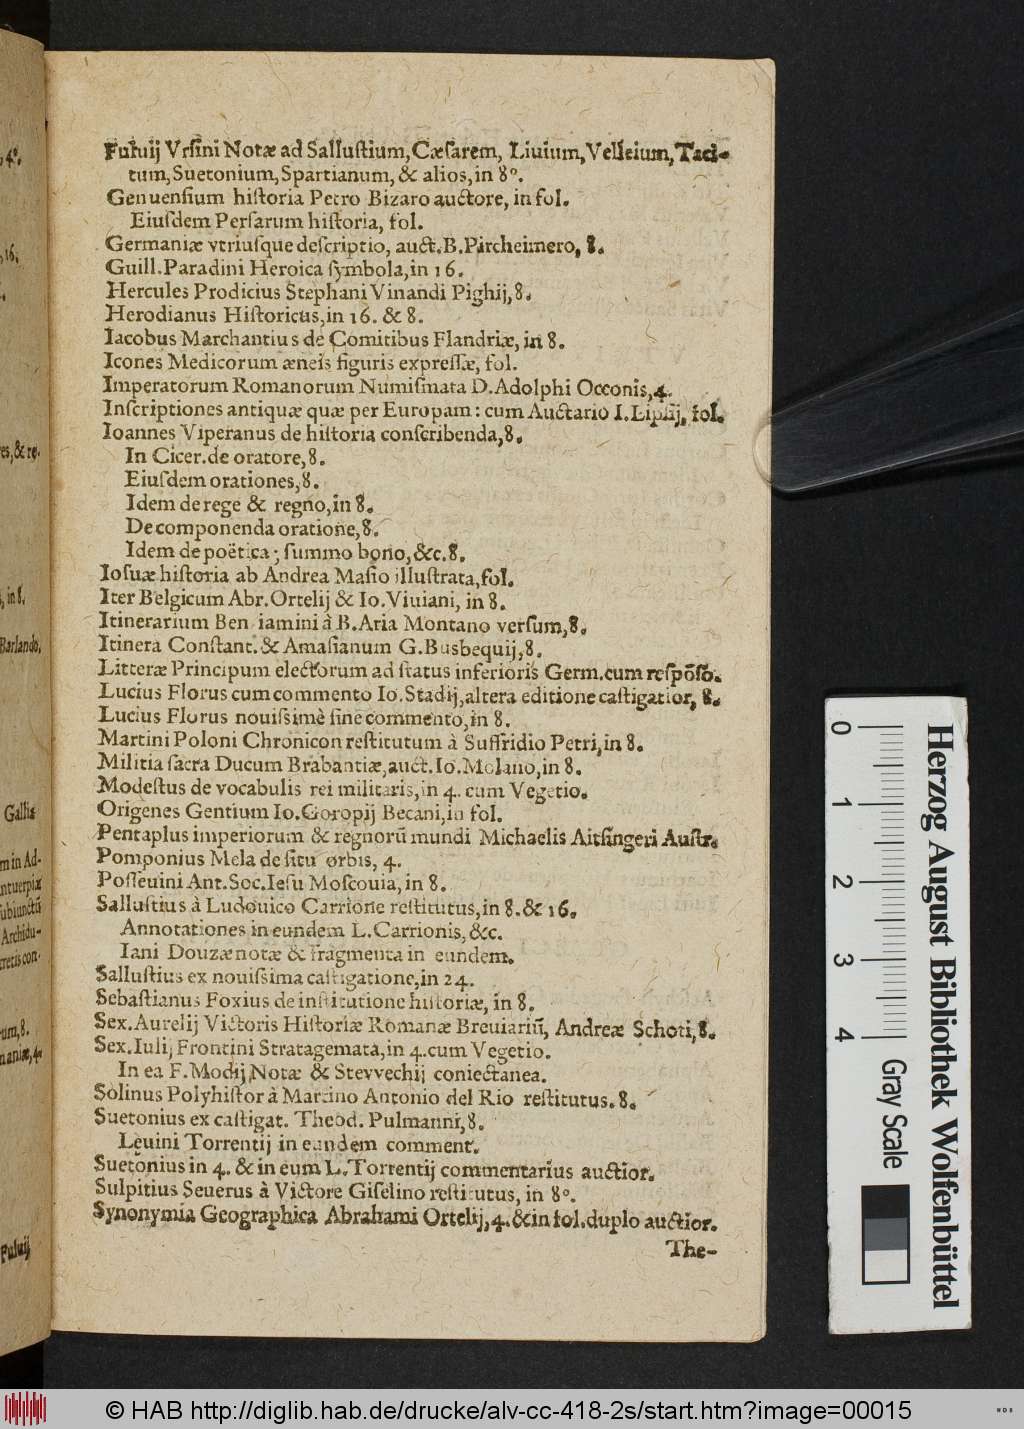 Fuluij Vrsini Notæ ad Sallustium, Cæsarem, Liuium, Velleium, Taci-
tum, Suetonium, Spartianum, & alios, in 8°.
Genuensium historia Petro Bizaro auctore, in fol.
Eiusdem Persarum historia, fol.
Germaniæ vtriusque descriptio, auct. B. Pircheimero, 8.
Guill. Paradini Heroica symbola, in 16.
Hercules Prodicius Stephani Vinandi Pighij, 8.
Herodianus Historicus, in 16. & 8.
Iacobus Marchantius de Comitibus Flandriæ, in 8.
Icones Medicorum æneis figuris expressæ, fol.
Imperatorum Romanorum Numismata D. Adolphi Occonis, 4.
Inscriptiones antiquæ quæ per Europam: cum Auctario I. Lipsij, fol.
Ioannes Viperanus de historia conscribenda, 8.
In Cicer. de oratore, 8.
Eiusdem orationes, 8.
Idem de rege & regno, in 8.
De componenda oratione, 8.
Idem de poëtica; summo bono, &c. 8.
Iosuæ historia ab Andrea Masio illustrata, fol.
Iter Belgicum Abr. Ortelij & Io. Viuiani, in 8.
Itinerarium Ben iamini à B. Aria Montano versum, 8.
Itinera Constant. & Amasianum G. Busbequij, 8.
Litteræ Principum electorum ad status inferioris Germ. cum respōsō.
Lucius Florus cum commento Io. Stadij, altera editione castigatior, 8.
Lucius Florus nouissimè sine commento, in 8.
Martini Poloni Chronicon restitutum à Suffridio Petri, in 8.
Militia sacra Ducum Brabantiæ, auct. Io. Molano, in 8.
Modestus de vocabulis rei militaris, in 4. cum Vegetio.
Origenes Gentium Io. Goropij Becani, in fol.
Pentaplus imperiorum & regnorū mundi Michaelis Aitsingeri Austr.
Pomponius Mela de situ orbis, 4.
Posseuini Ant. Soc. Iesu Moscouia, in 8.
Sallustius à Ludouico Carrione restitutus, in 8. & 16.
Annotationes in eundem L. Carrionis, &c.
Iani Douzæ notæ & fragmenta in eundem.
Sallustius ex nouissima castigatione, in 24.
Sebastianus Foxius de institutione historiæ, in 8.
Sex. Aurelij Victoris Historiæ Romanæ Breuiariū, Andreæ Schoti, 8.
Sex. Iulij Frontini Stratagemata, in 4. cum Vegetio.
In ea F. Modij Notæ & Stevvechij coniectanea.
Solinus Polyhistor à Martino Antonio del Rio restitutus. 8.
Suetonius ex castigat. Theod. Pulmanni, 8.
Leuini Torrentij in eundem comment.
Suetonius in 4. & in eum L. Torrentij commentarius auctior.
Sulpitius Seuerus à Victore Giselino restitutus, in 8°.
Synonymia Geographica Abrahami Ortelij, 4. & in fol. duplo auctior.
The-
, 4°.
, 16.
res, & re-
, in 8.
Barlando,
Gallis
m in Ad-
ntuerpiæ
subiunctū
Archidu-
cretis con-
um, 8.
naniæ, 4.
Fuluij
0 1 2 3 4
Gray Scale
Herzog August Bibliothek Wolfenbüttel
© HAB http://diglib.hab.de/drucke/alv-cc-418-2s/start.htm?image=00015